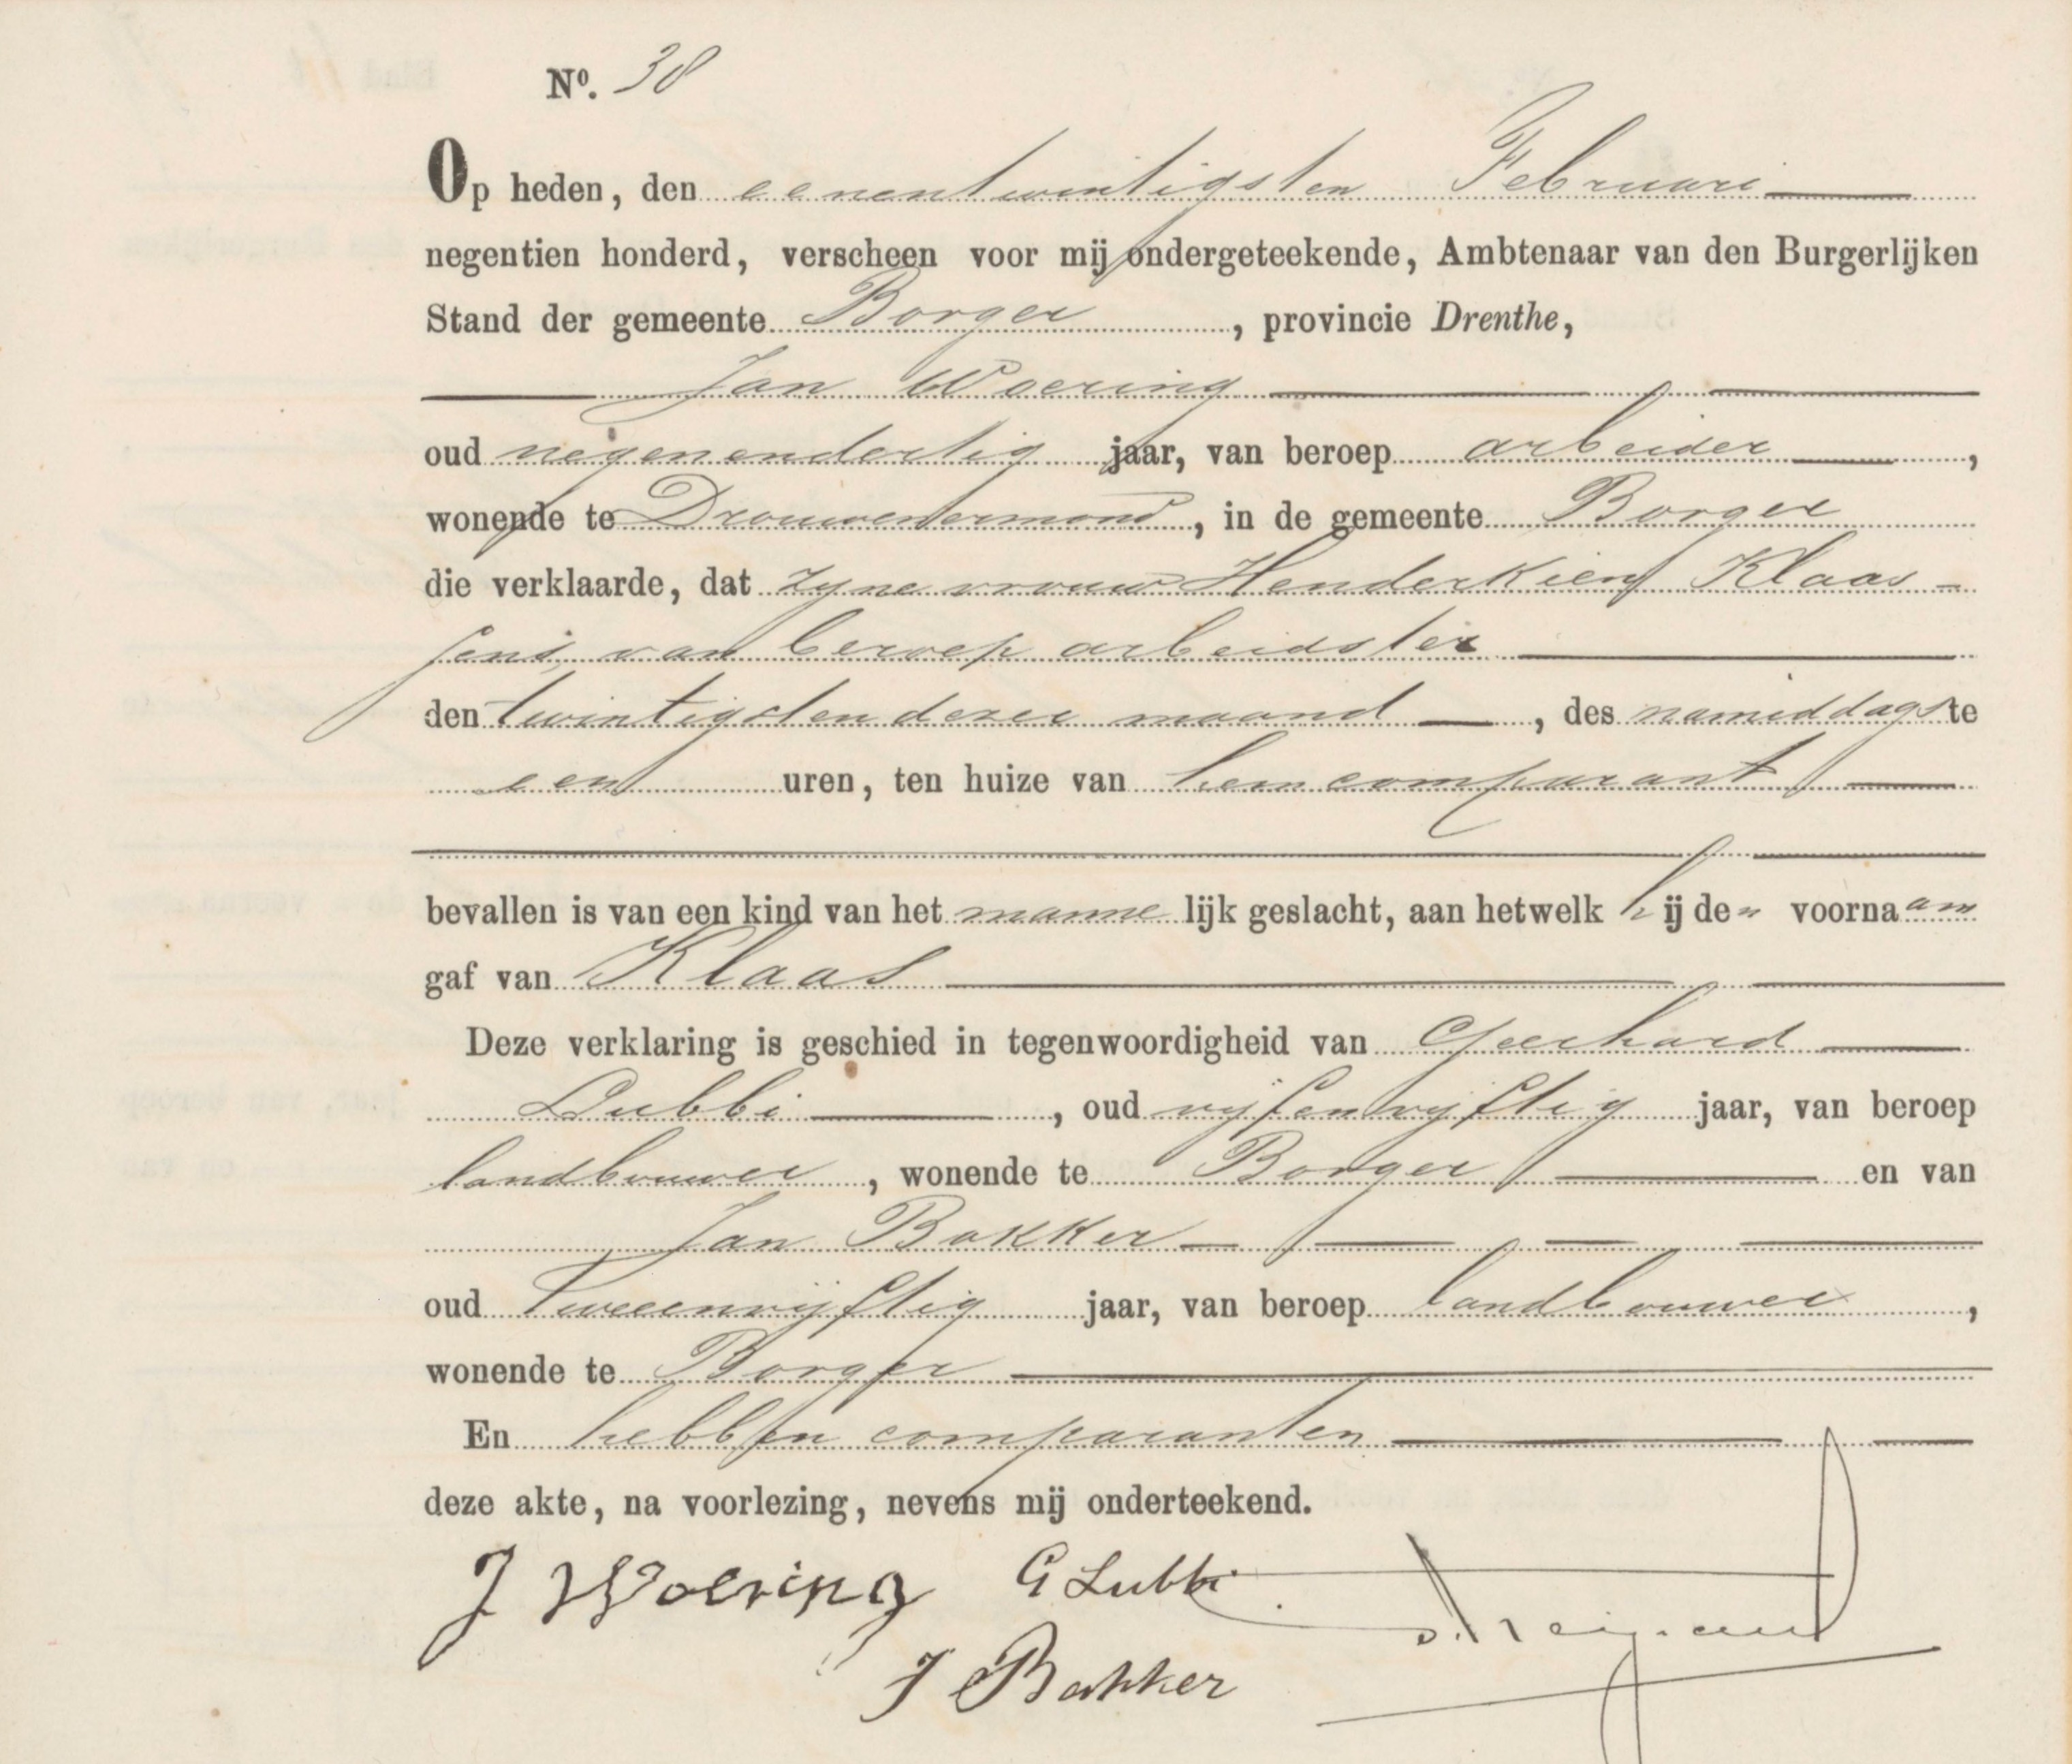 Nº. 38
Op heden, den eenentwintigsten Februari
negentien honderd, verscheen voor mij ondergeteekende, Ambtenaar van den Burgerlijken
Stand der gemeente Borger, provincie Drenthe,
Jan Woering
oud negenendertig jaar, van beroep arbeider,
wonende te Drouwenermond, in de gemeente Borger
die verklaarde, dat zyne vrouw Henderkien Klaas-
sens, van beroep arbeidster
den twintigsten dezer maand, des namiddags te
een uren, ten huize van hem comparant
bevallen is van een kind van het mannelijk geslacht, aan hetwelk hij den voornaam
gaf van Klaas
Deze verklaring is geschied in tegenwoordigheid van Geerhard
Lubbi, oud vijfenvijftig jaar, van beroep
landbouwer, wonende te Borger en van
Jan Bakker
oud tweeenvijftig jaar, van beroep landbouwer,
wonende te Borger
En hebben comparanten
deze akte, na voorlezing, nevens mij onderteekend.
J Woering G Lubbi
J Bakker